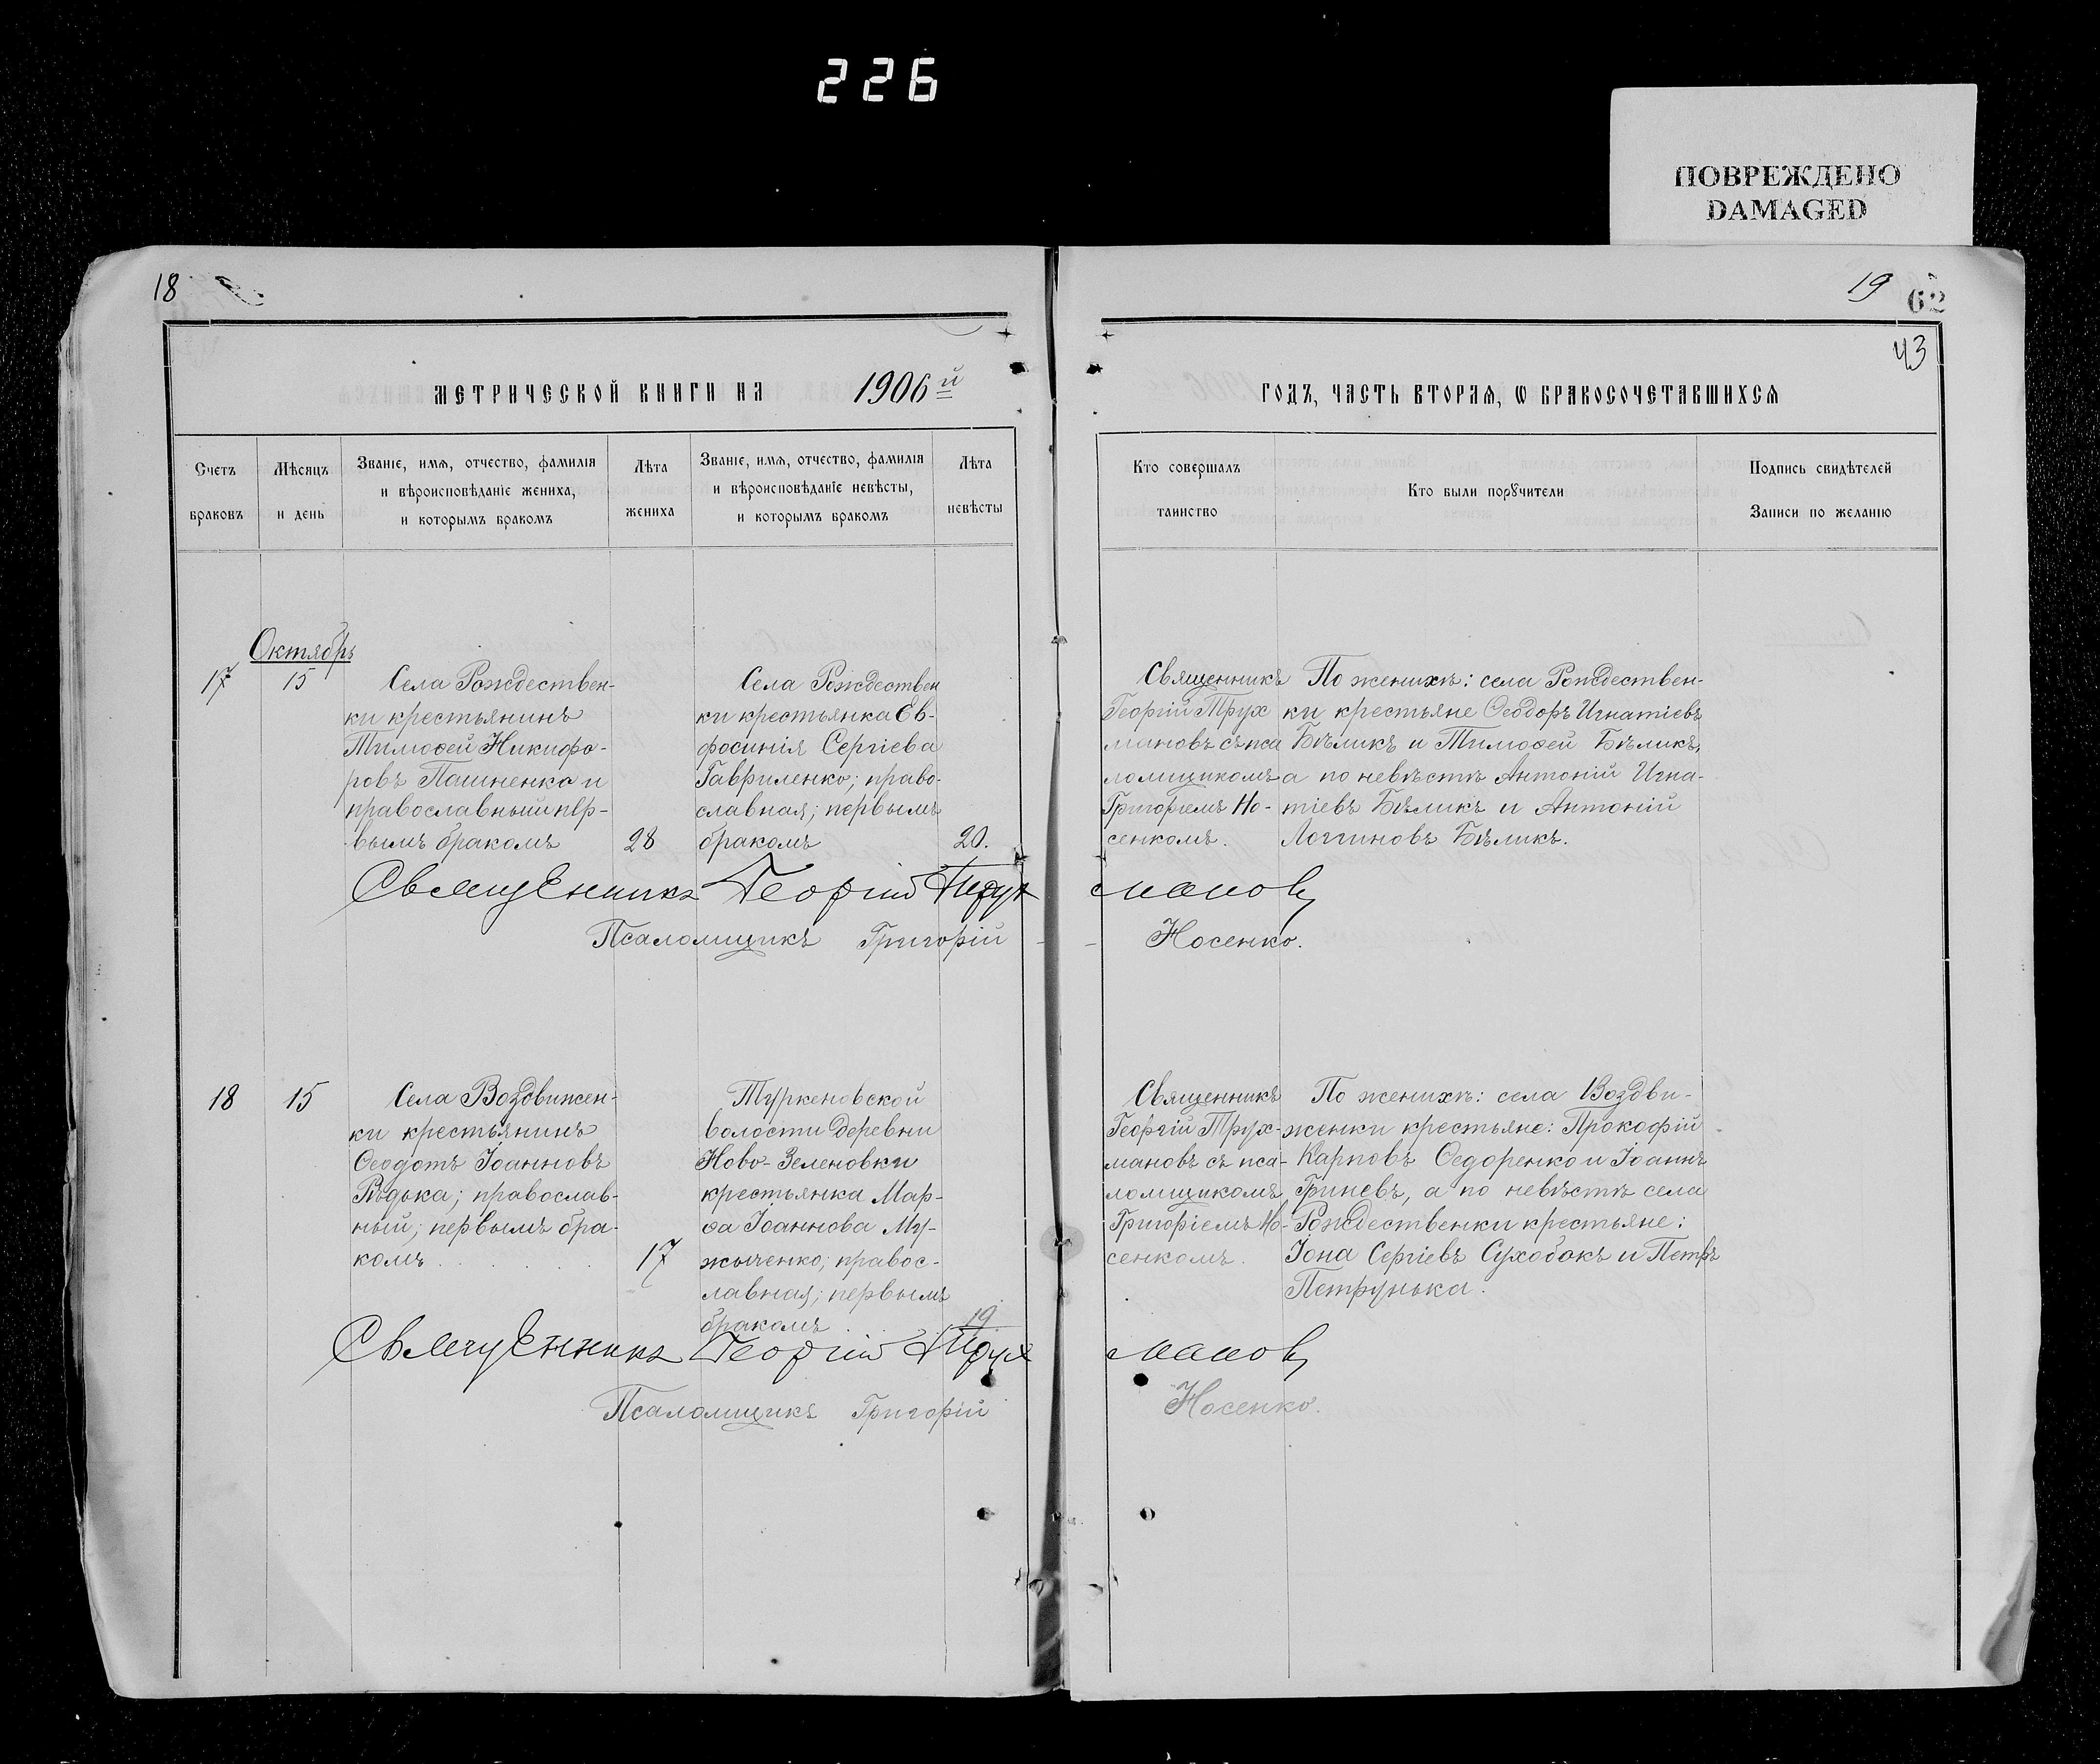 226
ПОВРЕЖДЕНО
DAMAGED
18
19
62
43
МЕТРИЧЕСКОЙ КНИГИ НА 1906й
ГОДЪ, ЧАСТЬ ВТОРАѦ, Ѡ БРАКОСОЧЕТАВШИХСѦ
Счетъ
браковъ
Мѣсяцъ
и день
Званіе, имѧ, отчество, фамилія
и вѣроисповѣданіе жениха,
и которымъ бракомъ
Лѣта
жениха
Званіе, имѧ, отчество, фамилія
и вѣроисповѣданіе невѣсты,
и которымъ бракомъ
Лѣта
невѣсты
Кто совершалъ
таинство
Кто были порꙋчители
Подпись свидѣтелей
Записи по желанію
Октябрь
17
15
Села Рождествен-
ки крестьянинъ
Тимофей Никифо-
ровъ Пашненко и
православный пер-
вымъ бракомъ
28
Села Рождествен
ки крестьянка Ев-
фосинія Сергіева
Гавриленко; право-
славная; первымъ
бракомъ
20.
Священникъ
Георгій Трух
мановъ съ пса
ломщикомъ
Григоріемъ Но-
сенкомъ.
По женихѣ: села Рождествен-
ки крестьяне Ѳеодоръ Игнатіевъ
Бѣликъ и Тимоѳей Бѣликъ,
а по невѣстѣ Антоній Игна-
тіевъ Бѣликъ и Антоній
Логгиновъ Бѣликъ.
Священникъ Георгій Трухмановъ
Псаломщикъ Григорій Носенко.
18
15
Села Воздвижен-
ки крестьянинъ
Ѳеодотъ Іоанновъ
Рѣдька; православ-
ный; первымъ бра-
комъ
17
Туркеновской
волости деревни
Ново-Зеленовки
крестьянка Мар-
ѳа Іоаннова Му-
жыченко; правос-
лавная; первымъ
бракомъ
19
Священникъ
Георгій Трух-
мановъ съ пса-
ломщикомъ
Григоріемъ Но-
сенкомъ.
По женихѣ: села Воздви-
женки крестьяне: Прокофій
Карповъ Ѳедоренко и Іоаннъ
Гриневъ, а по невѣстѣ села
Рождественки крестьяне:
Іона Сергіевъ Сухобокъ и Петръ
Петрунька.
Священникъ Георгій Трухмановъ
Псаломщикъ Григорій Носенко.